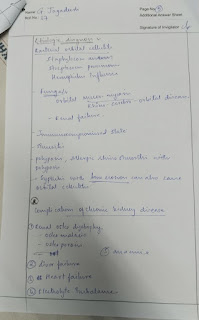 Name G. Jogadeesh
Page No
Additional Answer Sheet
Roll No. 52
Signature of Invigilator
Etiologic diagnosis =
Bacterial orbital cellulitis
Staphylococcus
Streptococcus pneumoniae
Haemophilus influenza
- Fungals
orbital mucor mycosis
orbital disease
- Renal failure
- Immunocompromised State
- Sinusitis
- polyposis, Allergic Sinusitis with
polyposis
- bone erosion can also cause
orbital cellulitis
Complications of chronic kidney disease
① Renal osteo dystrophy
- osteo malacia
- osteo porosis
⑤ Anaemia
② Liver failure
③ Heart failure
④ Electrolyte Imbalance